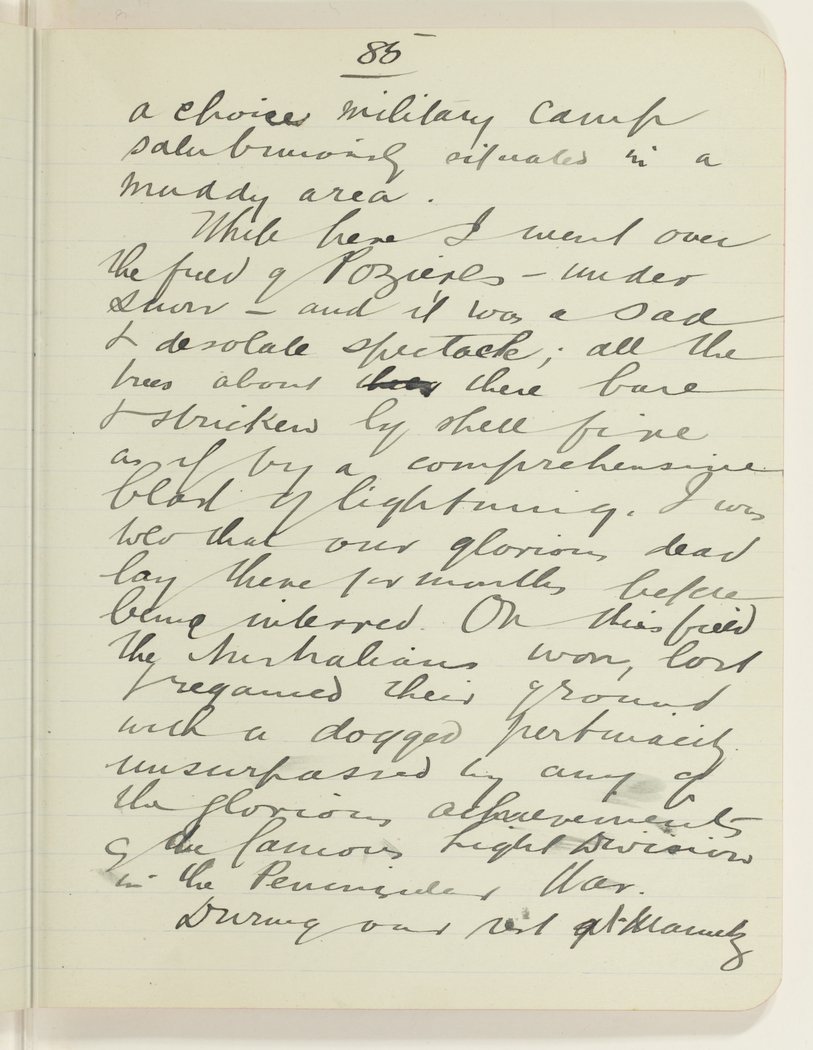 85
a choice military camp
salubriously situated in a
muddy area.
While here I went over
the field of Pozieres – under
snow – and it was a sad
& desolate spectacle; all the
trees about there bare
& stricken by shell fire
as if by a comprehensive
blast of lightning. I was
told that our glorious dead
lay there for months before
being interred. On this field
the Australians won, lost
& regained their ground
with a dogged pertinacity
unsurpassed by any of
the glorious achievements
of the famous Light Division
in the Peninsular War.
During our rest at Mametz